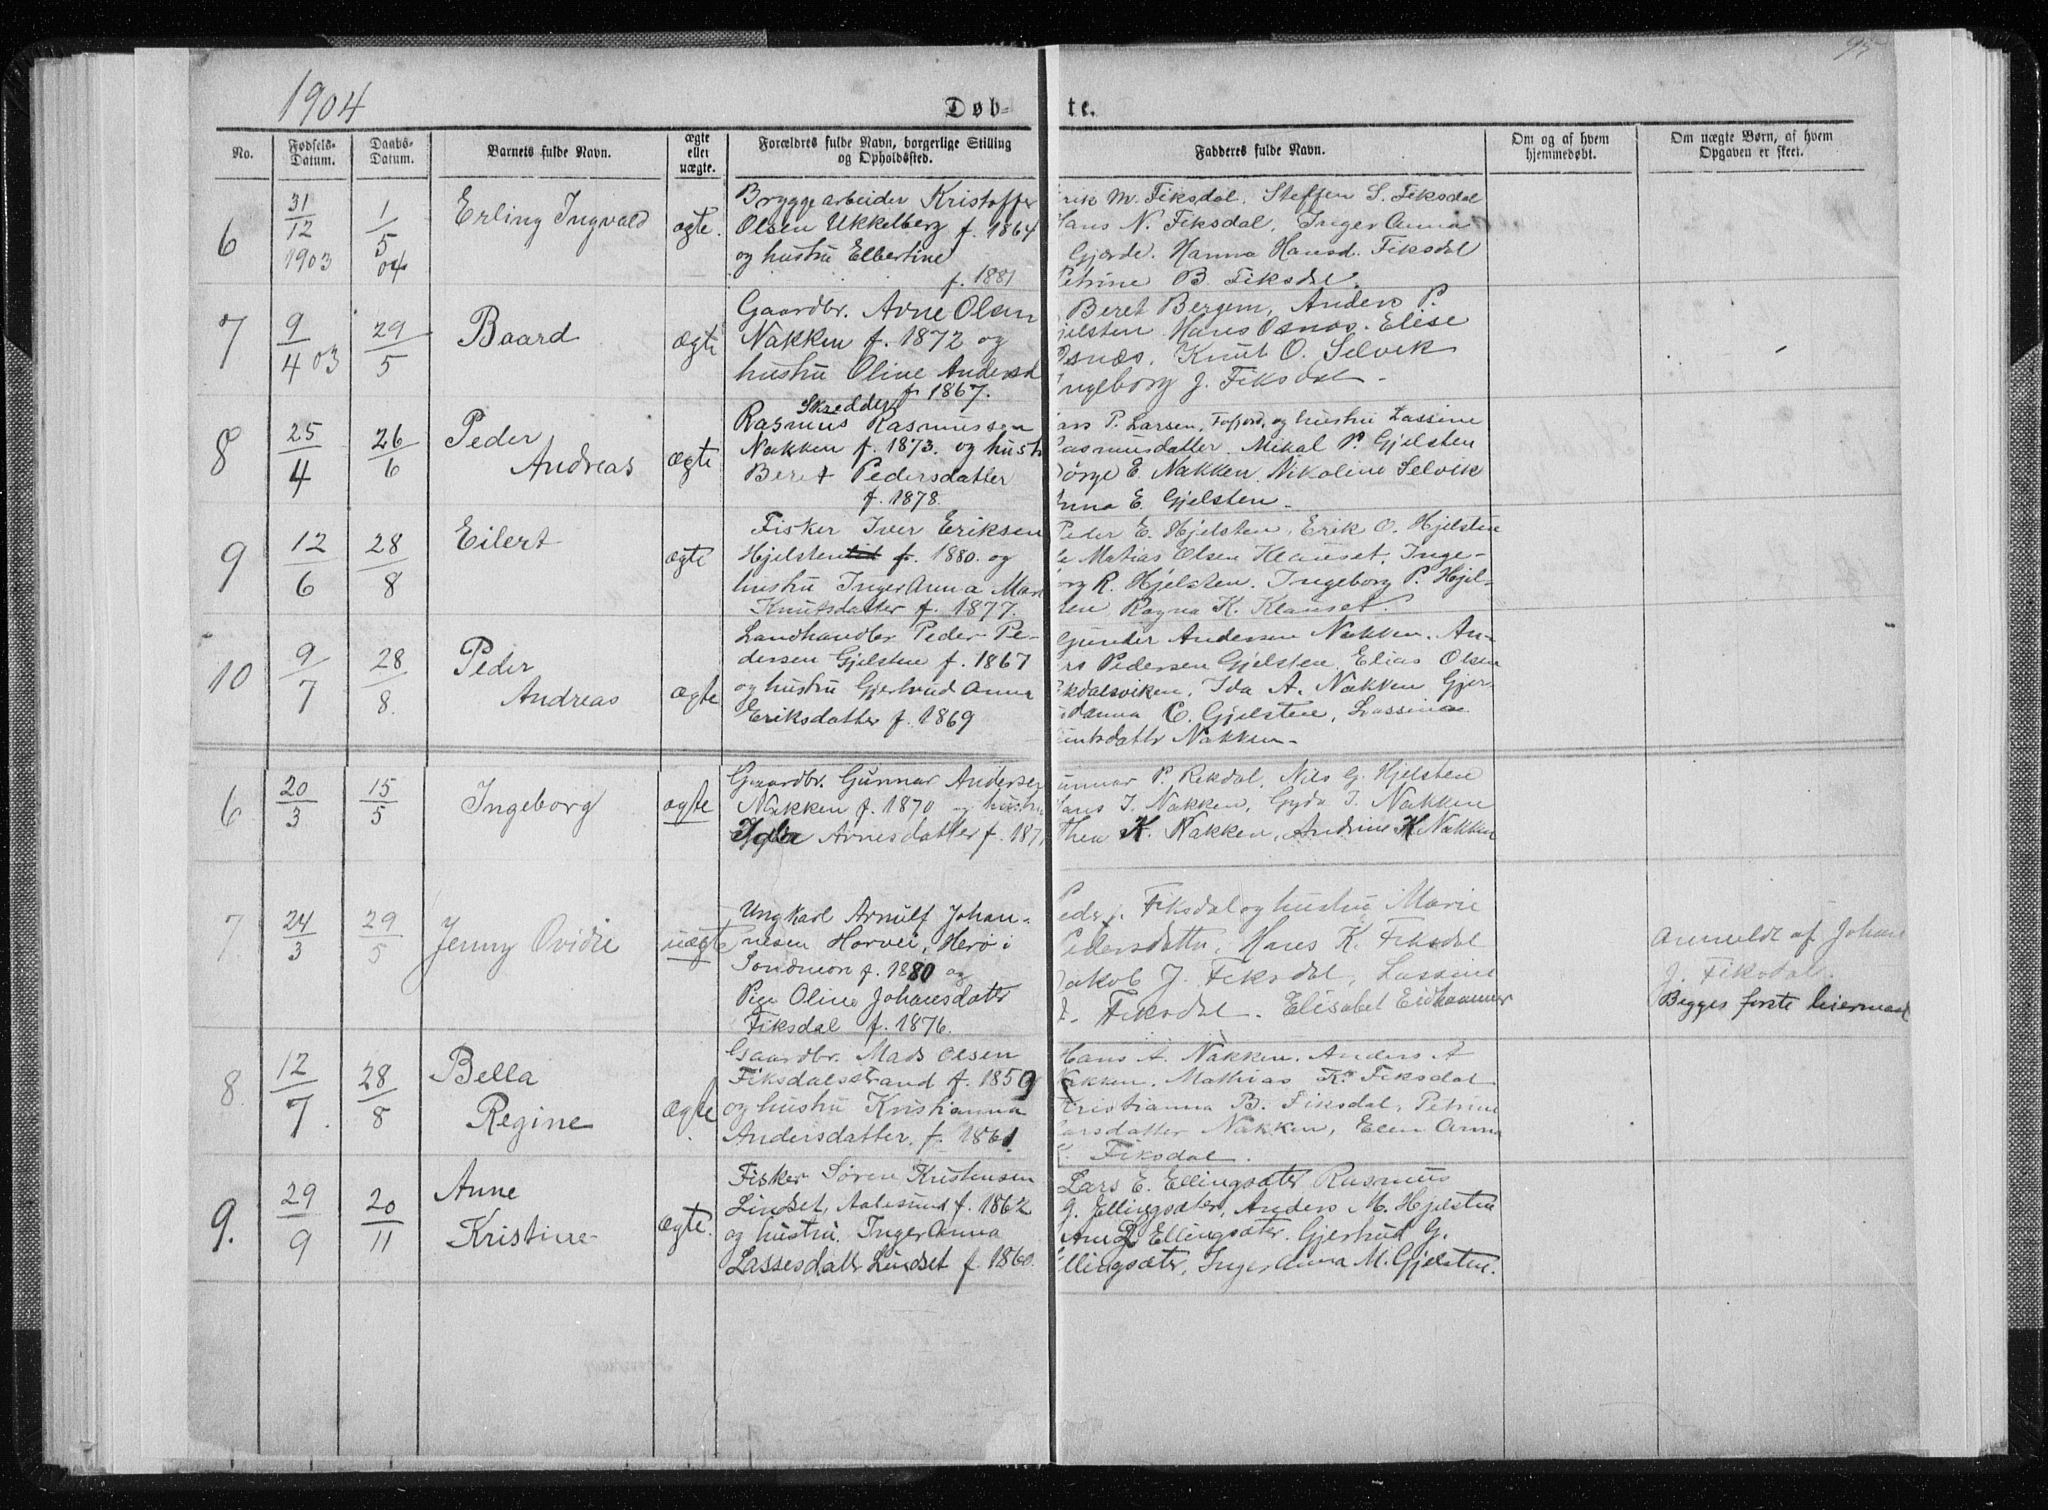 95
1904
Døb- te.
No.
Fødsels-Datum.
Daabs-Datum.
Barnets fulde Navn.
ægte eller uægte.
Forældres fulde Navn, borgerlige Stilling og Opholdssted.
Fadderes fulde Navn.
Om og af hvem hjemmedøbt.
Om uægte Børn, af hvem Opgaven er skeet.
6
31/12 1903
1/5 04
Erling Ingvald
ægte.
Bryggearbeider Kristoffer
Olsen Ukkelberg f. 1864
og hustru Elbertine
f. 1881
Erik M. Fiksdal, Steffen S. Fiksdal
Hans N. Fiksdal, Inger Anna
Gjærde. Hanna Hansd. Fiksdal
Petrine B Fiksdal.
7
9/4 03
29/5
Baard
ægte
Gaardbr. Arne Olsen
Nakken f. 1872 og
hustru Oline Andersd
f. 1867.
Beret Bergem, Anders P.
Gjelsten. Hans Osnæs. Elise
Osnæs. Knut O. Selvik
Ingeborg J. Fiksdal -
8
25/4
26/6
Peder
Andreas
ægte
Skredder
Rasmus Rasmussen
Nakken f. 1873. og hust
Beret Pedersdatter
f. 1878
Lars P. Larsen, og hustru Lassine
Rasmusdatter. Mikal P. Gjelsten
Børge E Nakken. Nikoline Selvik
Anna E. Gjelsten -
9
12/6
28/8
Eilert
ægte
Fisker Iver Eriksen
Hjelsten f. 1880. og
hustru Inger Anna Mar
Knutsdatter f. 1877.
Peder E. Hjelsten, Erik O. Hjelsten
Matias Olsen Klauset. Inge-
borg R. Hjelsten. Ingeborg P. Hjel-
sten Ragna K. Klauset.
10
9/7
28/8.
Peder
Andreas
ægte
Landhandler Peder Pe-
dersen Gjelsten f. 1867
og hustru Gjertrud Anna
Eriksdatter f. 1869
Gunder Andersen Nakken. An-
ders Pedersen Gjelsten, Elias Olsen
Rekdalsviken, Ida A. Nakken Gjer-
udanna C. Gjelsten, Lassina
Knutsdattr Nakken -
6
20/3
15/5
Ingeborg
ægte
Gaardbr. Gunnar Andersen
Nakken f. 1870 og hustru
Arnesdatter f. 187
Gunnar P. Rekdal, Nils G. Hjelsten
Hans I. Nakken, Gyda I. Nakken
Thea K. Nakken, Andrine K. Nakken
7
24/3
29/5
Jenny Ovidie
uægte
Ungkarl Arnulf Johan-
nesen Horvei, Herø i
Søndmør f. 1880 og
Pige Oline Johansdatter
Fiksdal f. 1876.
Peder J. Fiksdal og hustru Marie
Pedersdatter, Hans K. Fiksdal
Jakob J. Fiksdal, Lassine
J. Fiksdal. Elisabet Eidhammer
Anmeldt af Johan
J. Fiksdal.
Begges første leiermaal
8.
12/7.
28/8
Bella
Regine
ægte
Gaardbr. Mads Olsen
Fiksdalsstrand f. 1859
og hustru Kristianna
Andersdatter. f. 1861
Hans A. Nakken. Anders A
Nakken. Mathias K. Fiksdal
Kristianna B. Fiksdal, Petrine
Larsdatter Nakken, Elen Anna
K. Fiksdal.
9.
29/9
20/11
Anne
Kristine
ægte.
Fisker Søren Kristensen
Lindset, Aalesund f. 1862
og hustru. Inger Anna
Lassesdatr Lindset f. 1860.
Lars E. Ellingsæter Rasmus
G. Ellingsæter, Anders M. Hjelsten
Ane L. Ellingsæter. Gjertrud G.
Ellingsæter, Inger Anna M. Gjelsten.